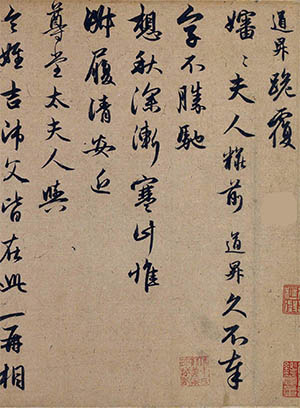 道昇跪覆
嬸〻夫人糚前道昇久不奉
字不勝馳
想秋深漸寒計惟
淑履清安近
尊堂太夫人與
令姪吉師父皆在此一再相